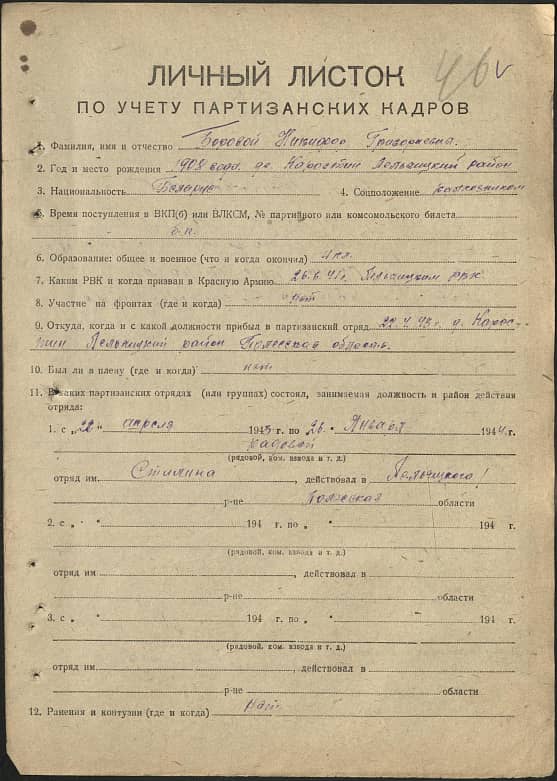 46 v
ЛИЧНЫЙ ЛИСТОК
ПО УЧЕТУ ПАРТИЗАНСКИХ КАДРОВ
1. Фамилия, имя и отчество Боровой Никифор Григорьевич.
2. Год и место рождения 1908 года де. Каростин Лельчицкий район
3. Национальность Беларус 4. Соцположение колхозником
5. Время поступления в ВКП(б) или ВЛКСМ, № партийного или комсомольского билета
б.п.
6. Образование: общее и военное (что и когда окончил) 4 кл.
7. Каким РВК и когда призван в Красную Армию 26.6.41г. Лельчицким РВК
8. Участие на фронтах (где и когда) нет
9. Откуда, когда и с какой должности прибыл в партизанский отряд 22.4.43г. д. Карос-
тин Лельчицкий район Полесская область.
10. Был ли в плену (где и когда) нет
11. В каких партизанских отрядах (или группах) состоял, занимаемая должность и район действия
отряда:
1. с „22“ апреля 1943 г. по „26“ Января 1944 г.
рядовой
(рядовой, ком. взвода и т. д.)
отряд им. Сталина, действовал в Лельчицкого
р-не Полесская области
2. с „ “ 194 г. по „ “ 194 г.
(рядовой, ком. взвода и т. д.)
отряд им., действовал в
р-не области
3. с „ “ 194 г. по „ “ 194 г.
(рядовой, ком. взвода и т. д.)
отряд им., действовал в
р-не области
12. Ранения и контузии (где и когда) нет